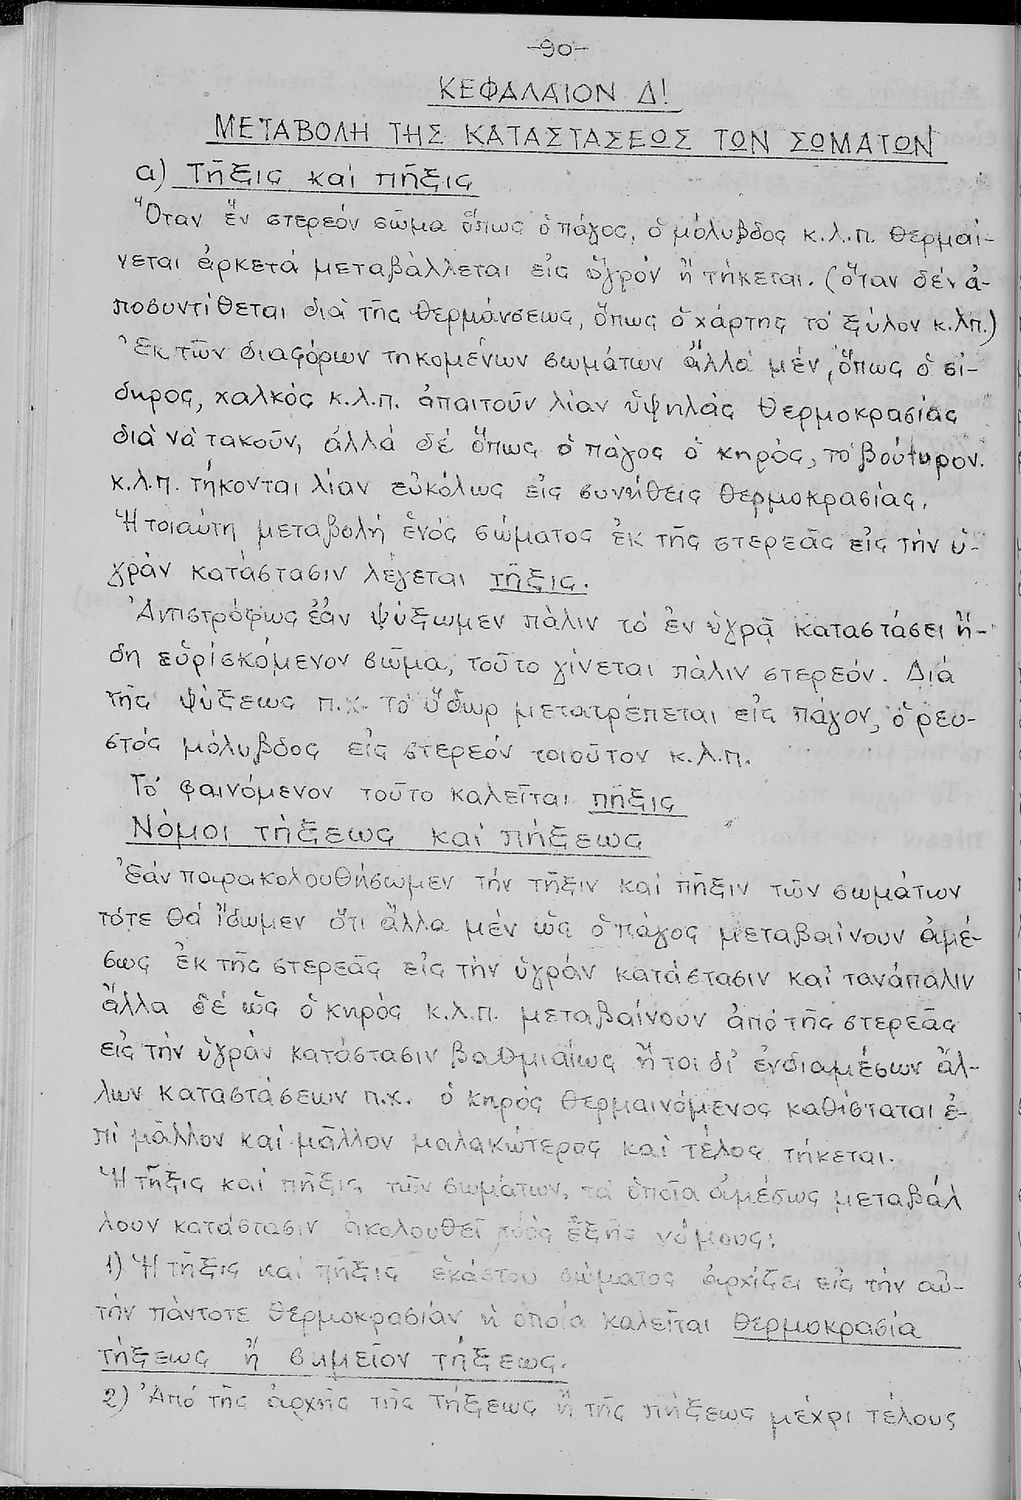 -90-
ΚΕΦΑΛΑΙΟΝ Δ!
ΜΕΤΑΒΟΛΗ ΤΗΣ ΚΑΤΑΣΤΑΣΕΩΣ ΤΩΝ ΣΩΜΑΤΩΝ
α) Τῆξις καί πῆξις
Ὅταν ἕν στερεόν σῶμα ὅπως ὁ πάγος, ὁ μόλυβδος κ.λ.π. θερμαί-
νεται ἀρκετά μεταβάλλεται εἰς ὑγρόν ἤ τήκεται. (ὅταν δέν ἀ-
ποσυντίθεται διά τῆς θερμάνσεως, ὅπως ὁ χάρτης τό ξύλον κ.λπ.)
Ἐκ τῶν διαφόρων τηκομένων σωμάτων ἄλλα μέν, ὅπως ὁ σί-
δηρος, χαλκός κ.λ.π. ἀπαιτοῦν λίαν ὑψηλάς θερμοκρασίας
διά νά τακοῦν, ἄλλά δέ ὅπως ὁ πάγος ὁ κηρός, τό βούτυρον.
κ.λ.π. τήκονται λίαν εὐκόλως εἰς συνήθεις θερμοκρασίας.
Ἡ τοιαύτη μεταβολή ἑνός σώματος ἐκ τῆς στερεᾶς εἰς τήν ὑ-
γράν κατάστασιν λέγεται τῆξις.
Ἀντιστρόφως ἐάν ψύξωμεν πάλιν τό ἐν ὑγρᾷ καταστάσει ἤ-
δη εὑρίσκόμενον σῶμα, τοῦτο γίνεται πάλιν στερεόν. Διά
τῆς ψύξεως π.χ. τό ὕδωρ μετατρέπεται εἰς πάγον, ὁ ρευ-
στός μόλυβδος εἰς στερεόν τοιοῦτον κ.λ.π.
Τό φαινόμενον τοῦτο καλεῖται πῆξις
Νόμοι τήξεως καί πήξεως
Ἐάν παρακολουθήσωμεν τήν τῆξιν καί πῆξιν τῶν σωμάτων
τότε θά ἴδωμεν ὅτι ἄλλα μέν ὡς ὁ πάγος μεταβαίνουν ἀμέ-
σως ἐκ τῆς στερεᾶς εἰς τήν ὑγράν κατάστασιν καί τανάπαλιν
ἄλλα δέ ὡς ὁ κηρός κ.λ.π. μεταβαίνουν ἀπό τῆς στερεᾶς
εἰς τήν ὑγράν κατάστασιν βαθμιαίως ἤτοι δι' ἐνδιαμέσων ἄλ-
λων καταστάσεων π.χ. ὁ κηρός θερμαινόμενος καθίσταται ἐ-
πί μᾶλλον καί μᾶλλον μαλακώτερος καί τέλος τήκεται.
Ἡ τῆξις καί πῆξις τῶν σωμάτων, τά ὁποῖα ἀμέσως μεταβάλ
λουν κατάστασιν ἀκολουθεῖ τούς ἑξῆς νόμους:
1) Ἡ τῆξις καί πῆξις ἑκάστου σώματος ἀρχίζει εἰς τήν αὐ-
τήν πάντοτε θερμοκρασίαν ἡ ὁποία καλεῖται θερμοκρασία
τήξεως ἤ σημεῖον τήξεως.
2) Ἀπό τῆς ἀρχῆς τῆς τήξεως ἤ τῆς πήξεως μέχρι τέλους